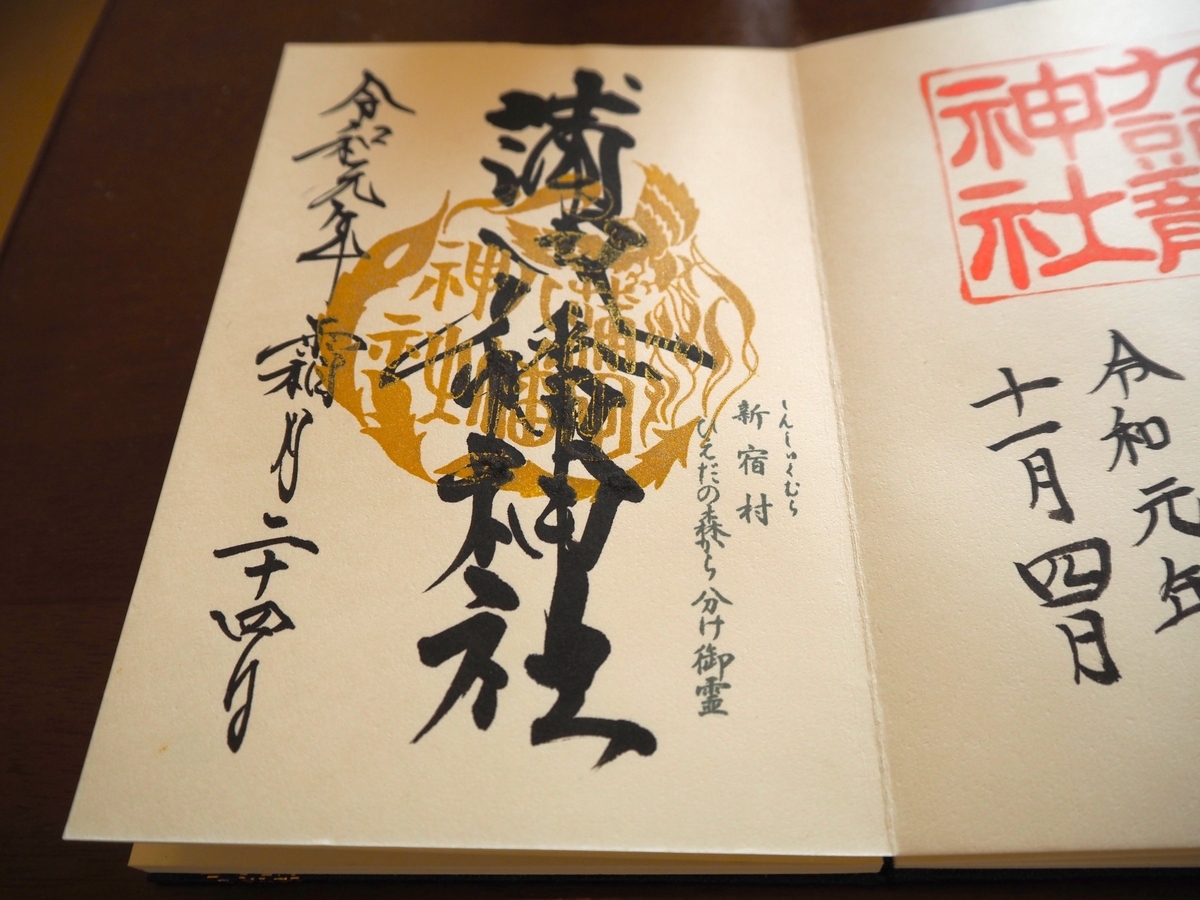 九頭龍
神社
令和元年
十一月四日
しんしゅくむら
新宿村
ひえだの森から分け御霊
蒲田八幡神社
令和元年霜月二十四日